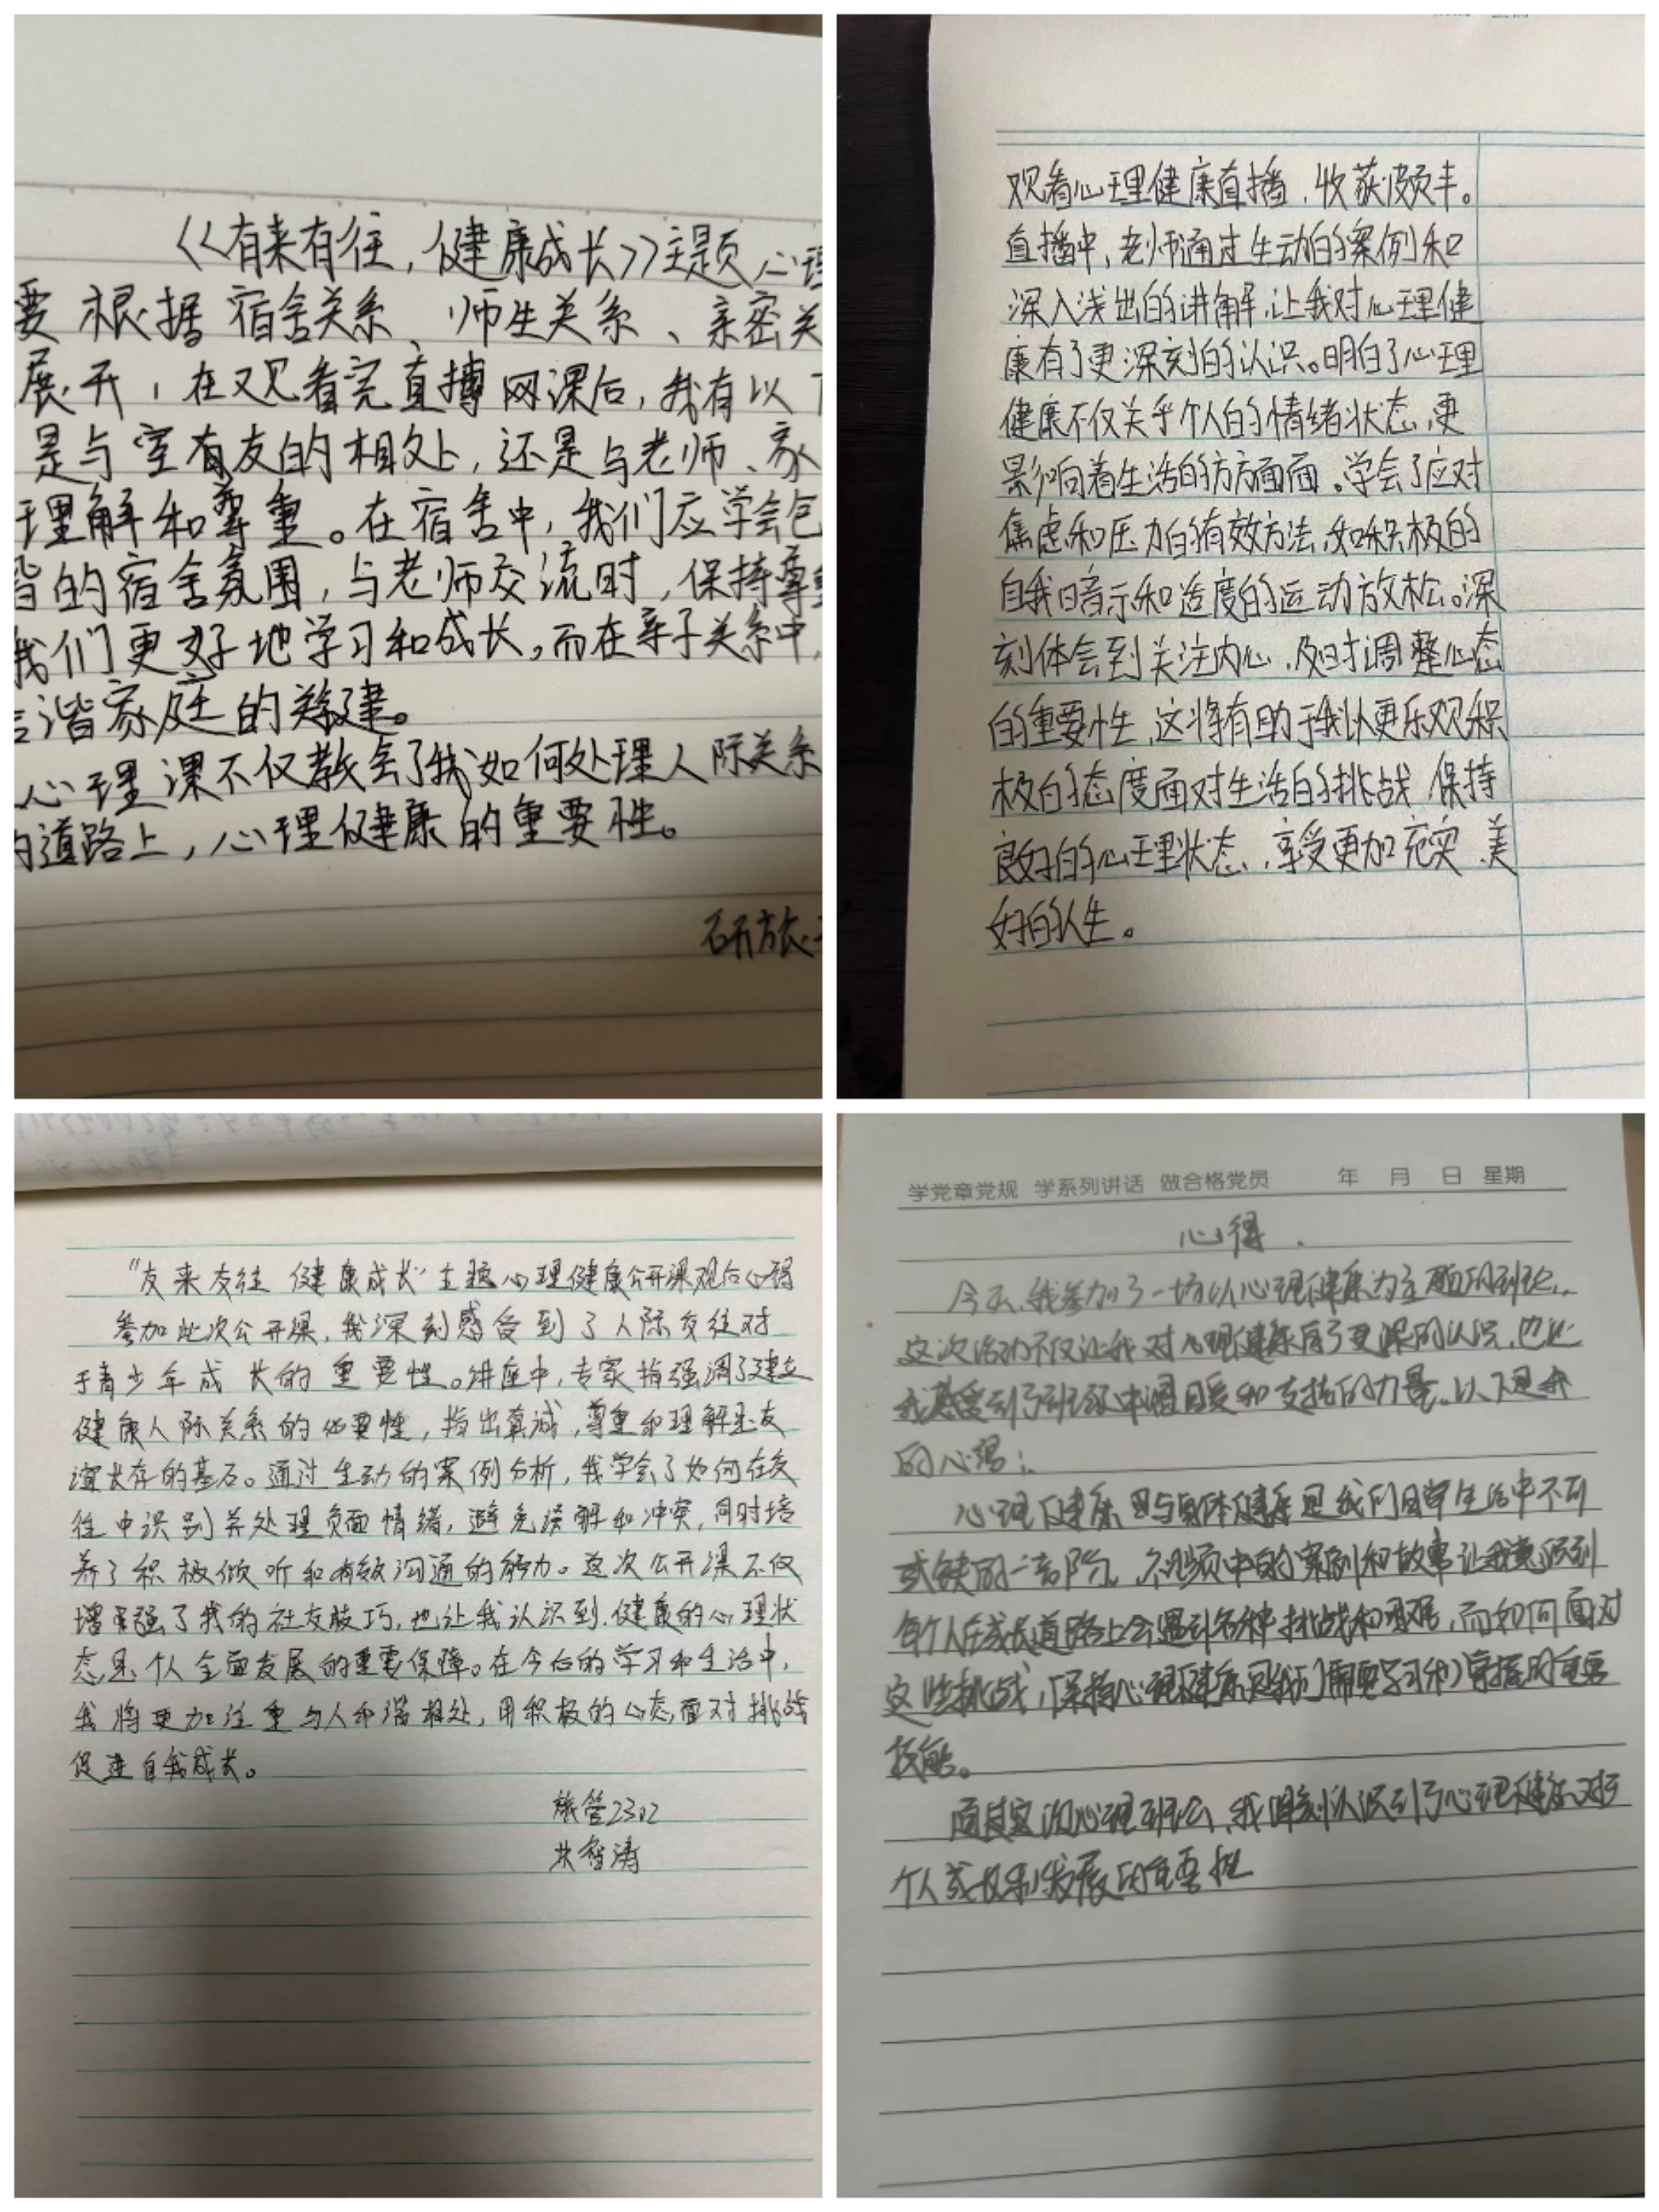 《有来有往，健康成长》主题心理
要根据宿舍关系、师生关系、亲密关
展开，在观看完直播网课后，我有以下
是与室友的相处，还是与老师、家
理解和尊重。在宿舍中，我们应学会包
谐的宿舍氛围，与老师交流时，保持尊重
我们更好地学习和成长。而在亲子关系中，
谐家庭的关键。
心理课不仅教会了我如何处理人际关系
的道路上，心理健康的重要性。
研旅
观看心理健康直播，收获颇丰。
直播中，老师通过生动的案例和
深入浅出的讲解，让我对心理健
康有了更深刻的认识。明白了心理
健康不仅关乎个人的情绪状态，更
影响着生活的方方面面。学会了应对
焦虑和压力的有效方法，如积极的
自我暗示和适度的运动放松。深
刻体会到关注内心，及时调整心态
的重要性，这将有助于我以更乐观积
极的态度面对生活的挑战，保持
良好的心理状态，享受更加充实、美
好的人生。
“友来友往 健康成长”主题心理健康公开课观后心得
参加此次公开课，我深刻感受到了人际交往对
于青少年成长的重要性。讲座中，专家指强调了建立
健康人际关系的必要性，指出真诚，尊重和理解是友
谊长存的基石。通过生动的案例分析，我学会了如何在交
往中识别并处理负面情绪，避免误解和冲突，同时培
养了积极倾听和有效沟通的能力。这次公开课不仅
增强了我的社交技巧，也让我认识到，健康的心理状
态是个人全面发展的重要保障。在今后的学习和生活中，
我将更加注重与人和谐相处，用积极的心态面对挑战
促进自我成长。
旅管2302
智涛
学党章党规 学系列讲话 做合格党员 年 月 日 星期
心得
今天，我参加了一场以心理健康为主题的班会，
这次活动不仅让我对心理健康有了更深的认识，也让
我感受到了班级中温暖和支持的力量。以下是我
的心得：
心理健康与身体健康是我们日常生活中不可
或缺的一部分，视频中的案例和故事让我意识到
每个人在成长道路上会遇到各种挑战和困难，而如何面对
这些挑战，保持心理健康是我们需要学习和掌握的重要
技能。
这次心理班会，我深刻认识到了心理健康对于
个人成长和发展的重要性